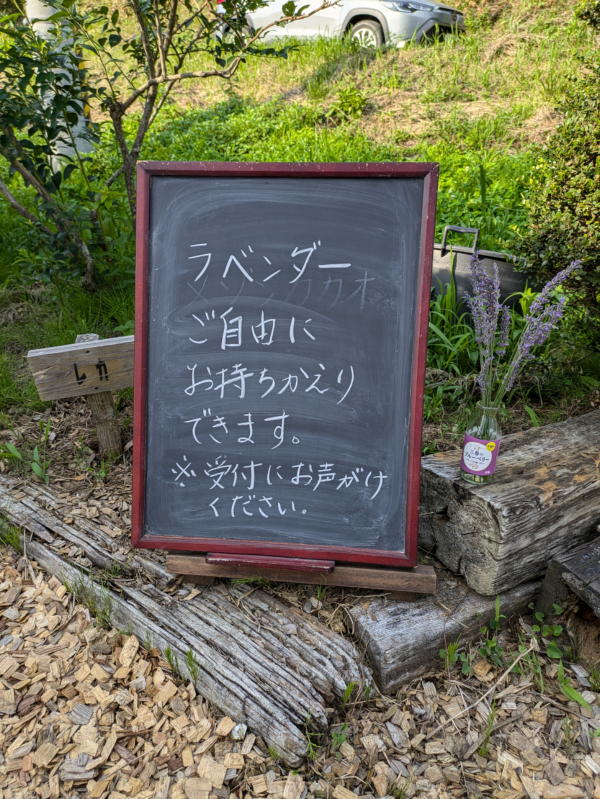 ラベンダー
ご自由に
お持ちかえり
できます。
※受付にお声がけ
ください。
ブルーベリー